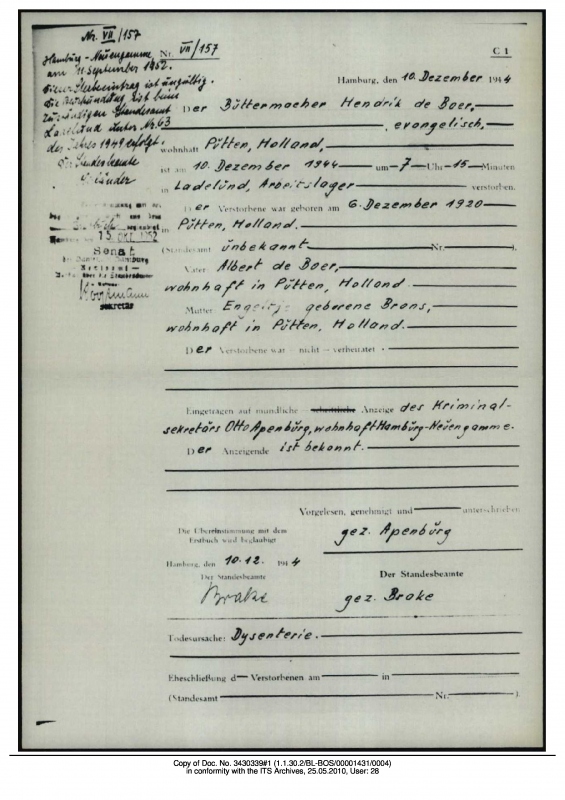 Nr. VII/157
Hamburg-Neuengamme
am 11. September 1952.
Dieser Sterbeeintrag ist ungültig.
Die Beurkundung ist beim
zuständigen Standesamt
Ladelund unter Nr. 63
des Jahres 1949 erfolgt.
Der Standesbeamte
15. OKT. 1952
Senat
Sekretär
Nr. VII/157
C 1
Hamburg, den 10. Dezember 1944
Der Büttermacher Hendrik de Boer,
, evangelisch,
wohnhaft Pütten, Holland,
ist am 10. Dezember 1944 um 7 Uhr 15 Minuten
in Ladelünd, Arbeitslager verstorben.
Der Verstorbene war geboren am 6. Dezember 1920
in Pütten, Holland.
(Standesamt ünbekannt Nr. ).
Vater Albert de Boer,
wohnhaft in Pütten, Holland
Mutter geborene Brons,
wohnhaft in Pütten, Holland.
Der Verstorbene war – nicht – verheiratet
Eingetragen auf mündliche – schriftliche – Anzeige des Kriminal-
sekretärs Otto Apenbürg, wohnhaft Hambürg-Neüengamme.
Der Anzeigende ist bekannt.
Vorgelesen, genehmigt und unterschrieben
Die Übereinstimmung mit dem
Erstbuch wird beglaubigt
gez. Apenbürg
Hamburg, den 10.12. 1944
Der Standesbeamte
Brake
Der Standesbeamte
gez. Brake
Todesursache: Dysenterie.
Eheschließung d Verstorbenen am in
(Standesamt Nr. ).
Copy of Doc. No. 3430339#1 (1.1.30.2/BL-BOS/00001431/0004)
in conformity with the ITS Archives, 25.05.2010, User: 28